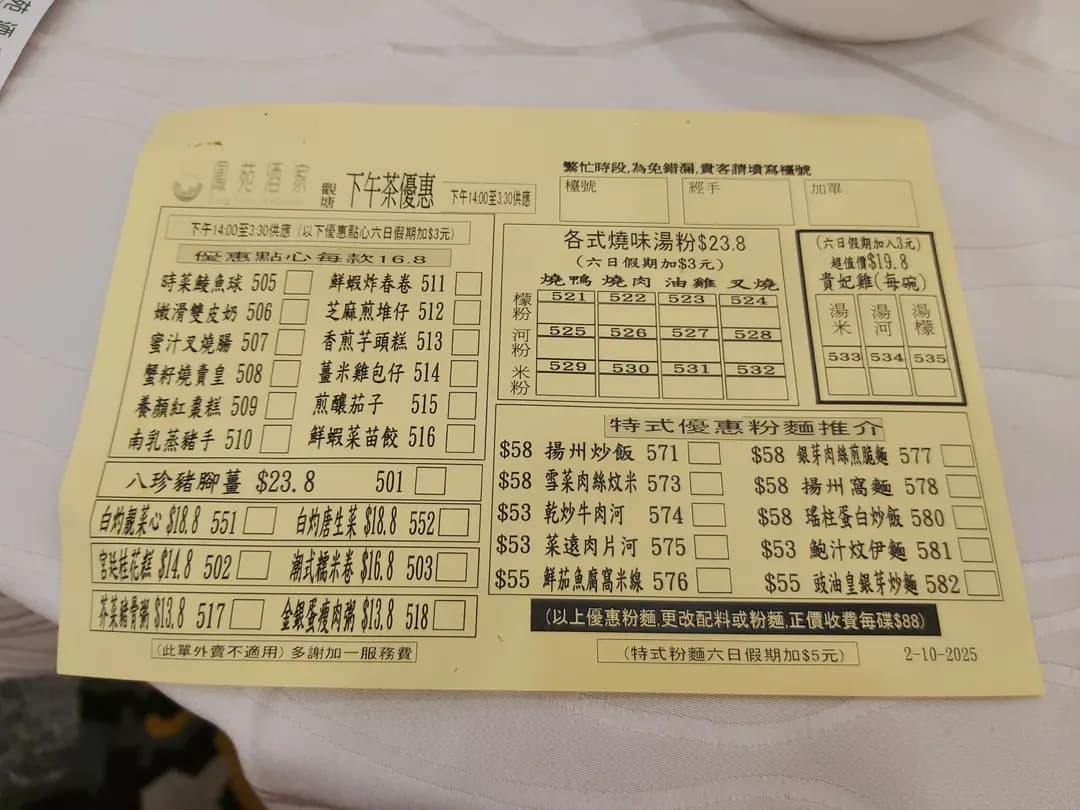 鳳苑酒家
觀塘
下午茶優惠
下午14:00至3:30供應
繁忙時段,為免錯漏,貴客請填寫檯號
檯號 經手 加單
下午14:00至3:30供應(以下優惠點心六日假期加$3元)
優惠點心每款16.8
時菜鯪魚球 505 鮮蝦炸春卷 511
嫩滑雙皮奶 506 芝麻煎堆仔 512
蜜汁叉燒腸 507 香煎芋頭糕 513
蟹籽燒賣皇 508 薑米雞包仔 514
養顏紅棗糕 509 煎釀茄子 515
南乳蒸豬手 510 鮮蝦菜苗餃 516
八珍豬腳薑 $23.8 501
白灼靚菜心 $18.8 551 白灼唐生菜 $18.8 552
宮廷桂花糕 $14.8 502 潮式糯米卷 $16.8 503
芥菜豬骨粥 $13.8 517 金銀蛋瘦肉粥 $13.8 518
(此單外賣不適用)多謝加一服務費
各式燒味湯粉$23.8
(六日假期加$3元)
燒鴨 燒肉 油雞 叉燒
檬粉 521 522 523 524
河粉 525 526 527 528
米粉 529 530 531 532
(六日假期加入3元)
超值價$19.8
貴妃雞(每碗)
湯米 湯河 湯檬
533 534 535
特式優惠粉麵推介
$58 揚州炒飯 571 $58 銀芽肉絲煎脆麵 577
$58 雪菜肉絲炆米 573 $58 揚州窩麵 578
$53 乾炒牛肉河 574 $58 瑤柱蛋白炒飯 580
$53 菜遠肉片河 575 $53 鮑汁炆伊麵 581
$55 鮮茄魚腐窩米線 576 $55 豉油皇銀芽炒麵 582
(以上優惠粉麵,更改配料或粉麵,正價收費每碟$88)
(特式粉麵六日假期加$5元)
2-10-2025